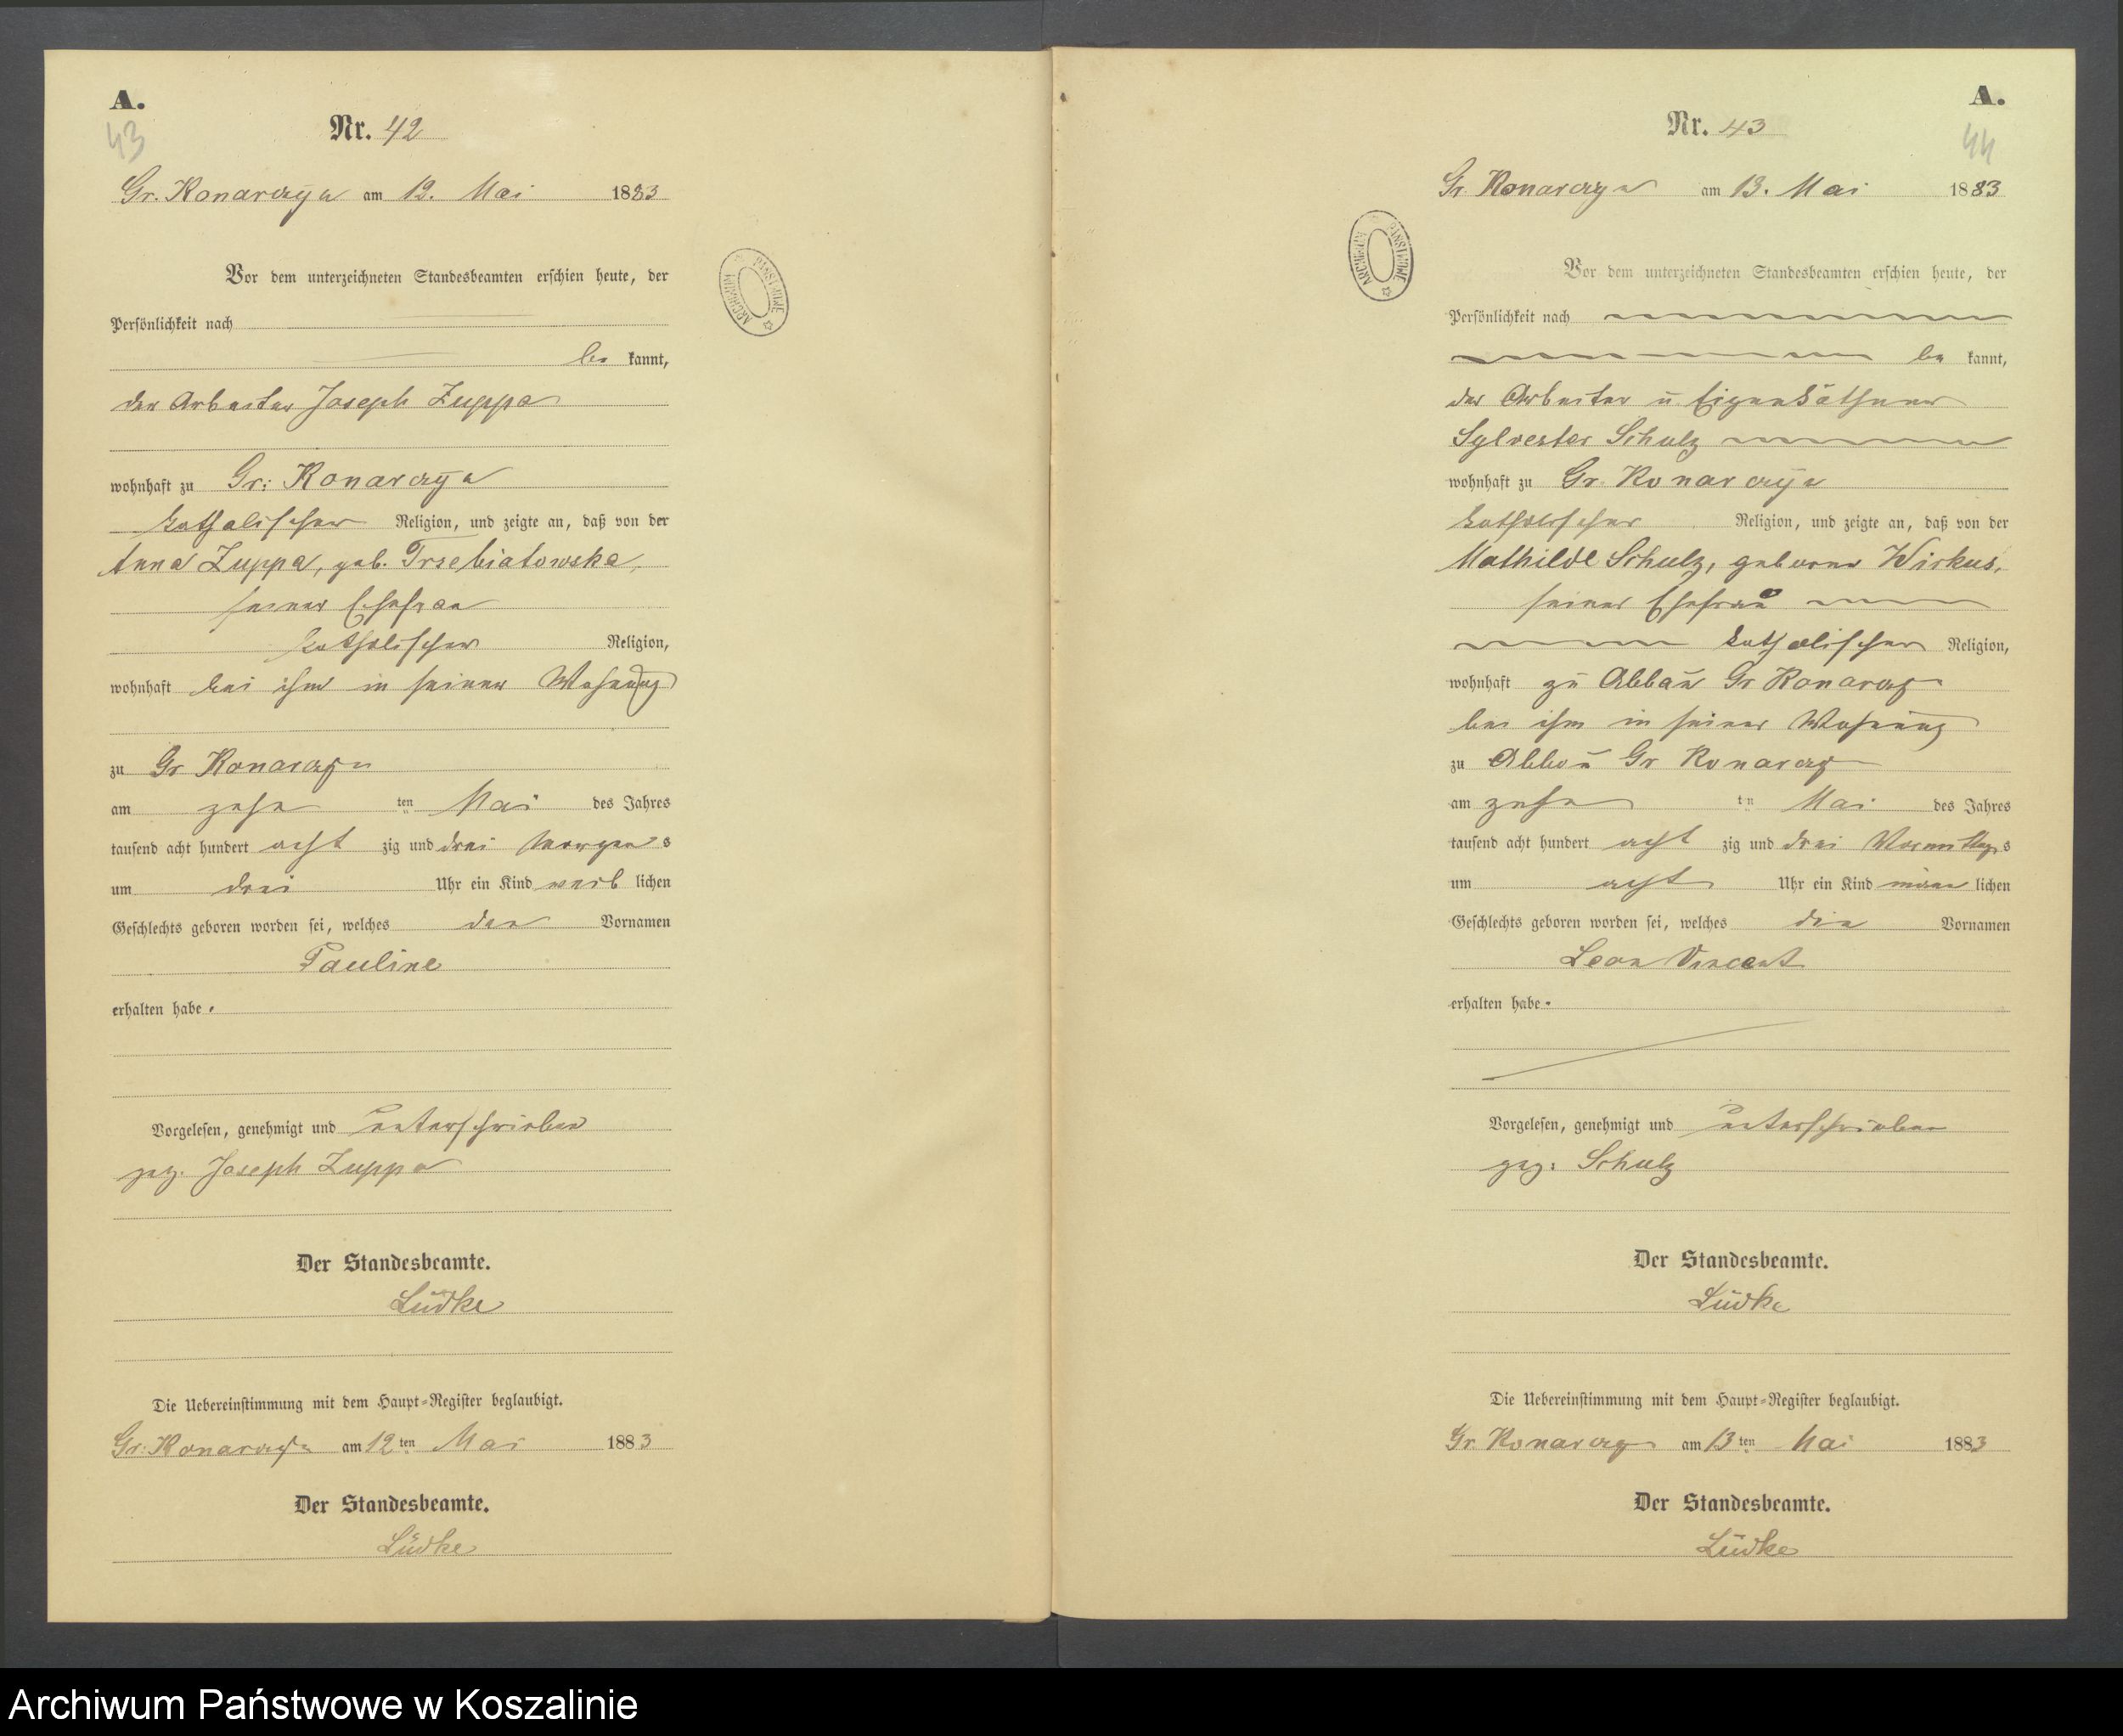 A.
43
Nr. 42
Gr. Konarczyn am 12. Mai 1883
Vor dem unterzeichneten Standesbeamten erschien heute, der
Persönlichkeit nach
be kannt,
der Arbeiter Joseph Zuppa
wohnhaft zu Gr: Konarczyn
katholischer Religion, und zeigte an, daß von der
Anna Zuppa, geb. Trzebiatowska,
seiner Ehefrau
katholischer Religion,
wohnhaft bei ihm in seiner Wohnung
zu Gr Konarczyn
am zehn ten Mai des Jahres
tausend acht hundert acht zig und drei Morgens
um drei Uhr ein Kind weib lichen
Geschlechts geboren worden sei, welches den Vornamen
Pauline
erhalten habe.
Vorgelesen, genehmigt und unterschrieben
gez. Joseph Zuppa
Der Standesbeamte.
Lüdke
Die Uebereinstimmung mit dem Haupt-Register beglaubigt.
Gr: Konarczyn am 12 ten Mai 1883
Der Standesbeamte.
Lüdke
ARCHIWUM PAŃSTWOWE
A.
44
Nr. 43
Gr. Konarczyn am 13. Mai 1883
ARCHIWUM PAŃSTWOWE
Vor dem unterzeichneten Standesbeamten erschien heute, der
Persönlichkeit nach
be kannt,
der Arbeiter u. Eigenkäthner
Sylvester Schulz
wohnhaft zu Gr. Konarczyn
katholischer Religion, und zeigte an, daß von der
Mathilde Schulz, geborne Wirkus,
seiner Ehefrau
katholischer Religion,
wohnhaft zu Abbau Gr Konarczyn
bei ihm in seiner Wohnung
zu Abbau Gr Konarczyn
am zehn ten Mai des Jahres
tausend acht hundert acht zig und drei Vormittags
um acht Uhr ein Kind männ lichen
Geschlechts geboren worden sei, welches die Vornamen
Leon Vincent
erhalten habe.
Vorgelesen, genehmigt und unterschrieben
gez: Schulz
Der Standesbeamte.
Lüdke
Die Uebereinstimmung mit dem Haupt-Register beglaubigt.
Gr. Konarczyn am 13 ten Mai 1883
Der Standesbeamte.
Lüdke
Archiwum Państwowe w Koszalinie